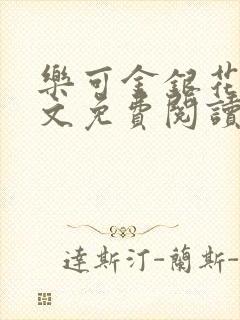 樂可金銀花
文免費閱讀
達斯汀-蘭斯-